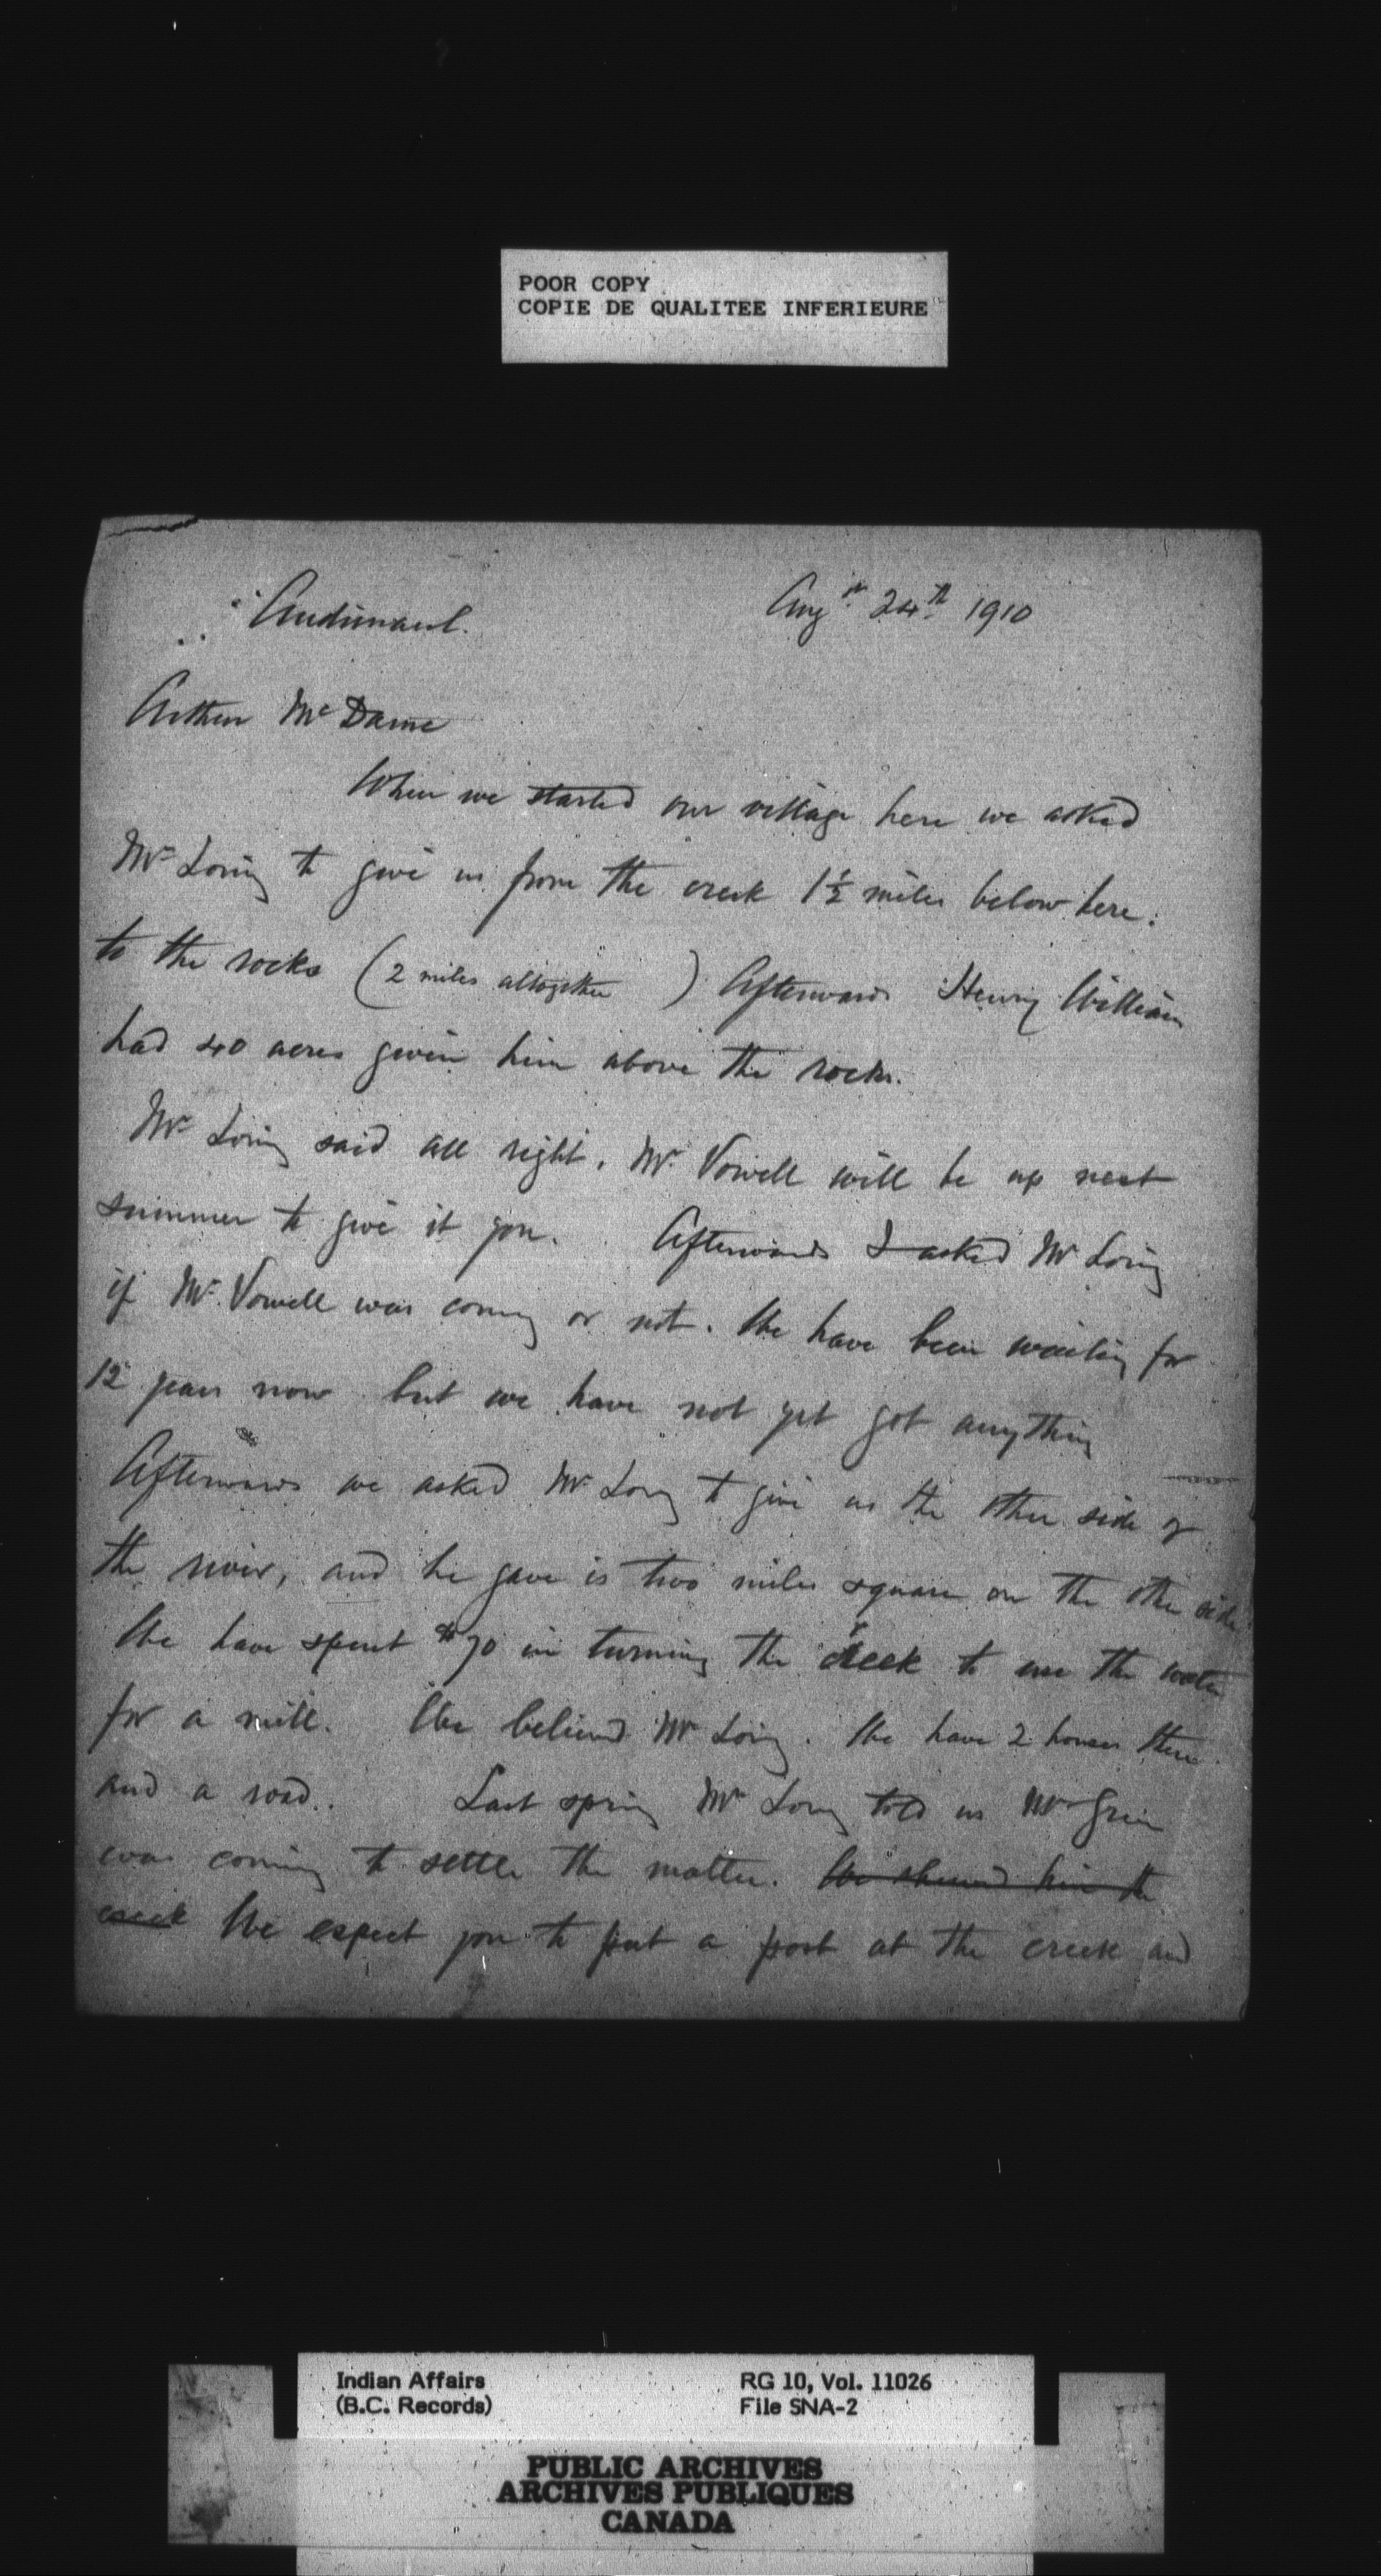 POOR COPY
COPIE DE QUALITEE INFERIEURE
Andimaul. Augst 24th 1910
Arthur McDame
When we started our village here we asked
Mr Loring to give us from the creek 1½ miles below here.
to the rocks (2 miles altogether) Afterwards Henry William
had 40 acres given him above the rocks.
Mr Loring said all right. Mr. Vowell will be up next
summer to give it you. Afterwards I asked Mr Loring
if Mr. Vowell was coming or not. We have been waiting for
12 years now but we have not yet got anything
Afterwards we asked Mr Loring to give us the other side of
the river, and he gave is two miles square on the other side
We have spent $70 in turning the creek to use the water
for a mill. We believed Mr Loring. We have 2 houses there
and a road. Last spring Mr Loring told us Mr Green
was coming to settle the matter. We shewed him the
creek We expect you to put a post at the creek and
Indian Affairs RG 10, Vol. 11026
(B.C. Records) File SNA-2
PUBLIC ARCHIVES
ARCHIVES PUBLIQUES
CANADA